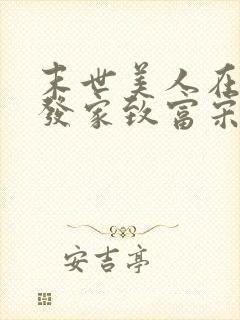 末世美人在
發家致富宋
安吉亭